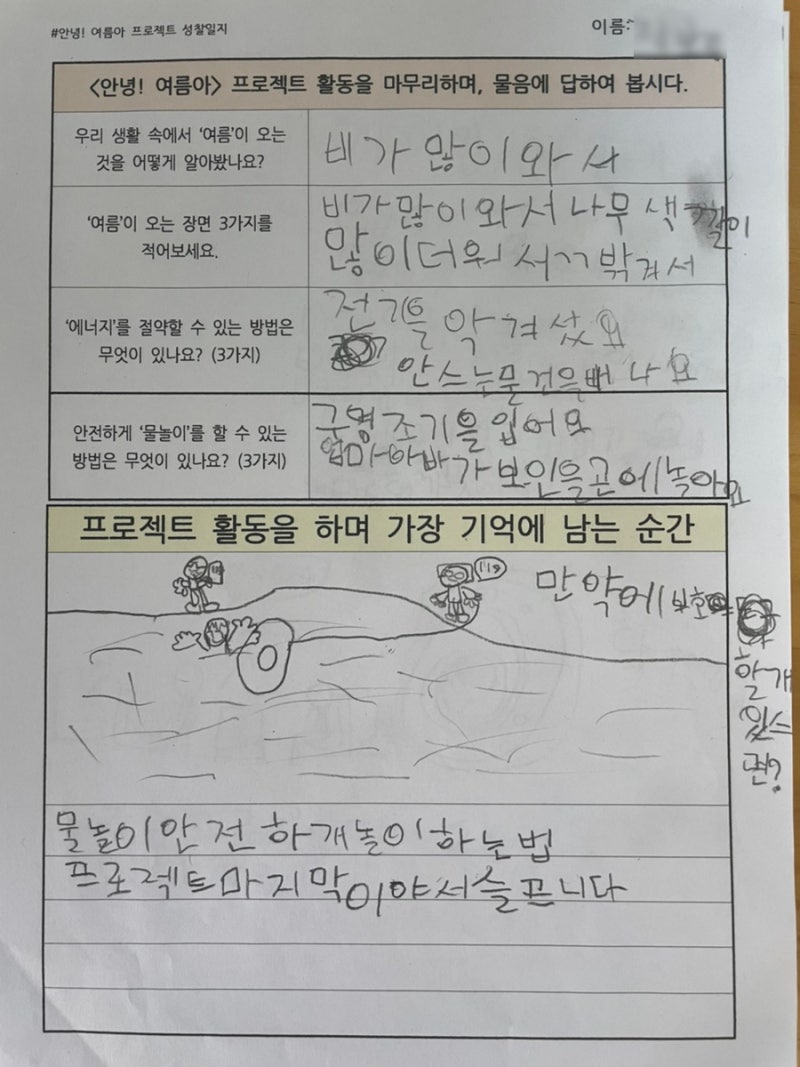 #안녕! 여름아 프로젝트 성찰일지
이름:
<안녕! 여름아> 프로젝트 활동을 마무리하며, 물음에 답하여 봅시다.
우리 생활 속에서 '여름'이 오는
것을 어떻게 알아봤나요?
비가 많이와서
'여름'이 오는 장면 3가지를
적어보세요.
비가많이와서 나무 색깔이
많이더워서 밖겨서
'에너지'를 절약할 수 있는 방법은
무엇이 있나요? (3가지)
전기를 악겨섰요
안스는물건을빼나요
안전하게 '물놀이'를 할 수 있는
방법은 무엇이 있나요? (3가지)
구명조기을입어요
엄마아바가보인을곧에놀아요
프로젝트 활동을 하며 가장 기억에 남는 순간
만약에 보호
할개
있스
물놀이안전하개놀이하는법
프로젝트마지막이야서슬프니다